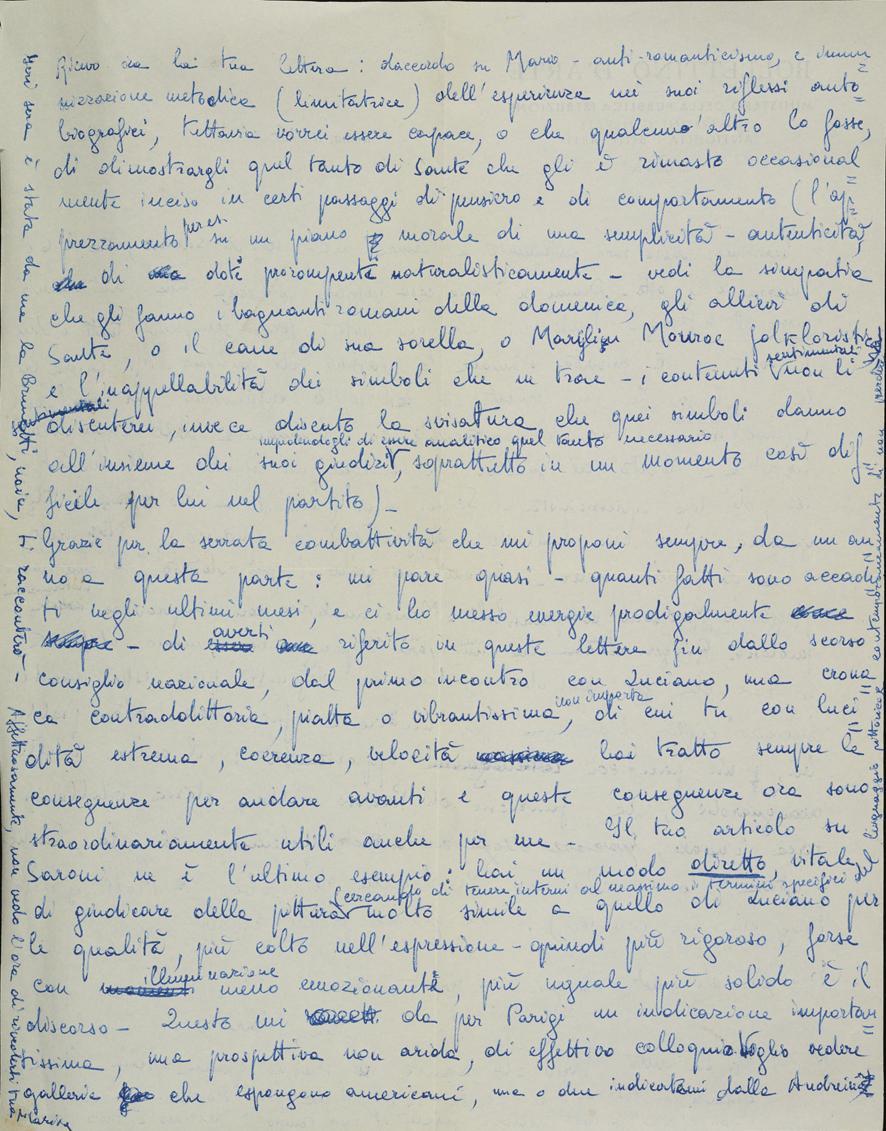 Ricevo ora la tua lettera : daccordo su Mario - anti-romanticismo, e immu=
nizzazione metodica (limitatrice) dell'esperienza nei suoi riflessi auto=
biografici, tuttavia vorrei essere capace, o che qualcun'altro lo fosse,
di dimostrargli quel tanto di Sante che gli è rimasto occasional=
mente inciso in certi passaggi di pensiero e di comportamento (l'ap=
prezzamento per es. su un piano morale di una semplicità - autenticità,
di doti prorompenti naturalisticamente - vedi la simpatia
che gli fanno i bagnanti romani della domenica, gli allievi di
Sante, o il cane di sua sorella, o Marylin Monroe folkloristica
e l'inappellabilità dei simboli che ne trae - i contenuti sentimentali non li
discuterei, invece discuto la svisatura che quei simboli danno
all'insieme dei suoi giudizi, impedendogli di essere analitico quel tanto necessario, soprattutto in un momento così dif=
ficile per lui nel partito) -
Grazie per la serrata combattività che mi proponi sempre, da un an=
no a questa parte : mi pare quasi - quanti fatti sono accadu=
ti negli ultimi mesi, e ci ho messo energie prodigalmente
- di averti riferito in queste lettere fin dallo scorso
consiglio nazionale, dal primo incontro con Luciano, una crona=
ca contradditoria, piatta o vibrantissima, non importa, di cui tu con luci=
dità estrema, coerenza, velocità hai tratto sempre le
conseguenze per andare avanti e queste conseguenze ora sono
straordinariamente utili anche per me - Il tuo articolo su
Saroni ne è l'ultimo esempio : hai un modo diretto, vitale,
di giudicare della pittura cercando di tenere interni al massimo i termini specifici del linguaggio pittorico e contemporaneamente di non perder
molto simile a quello di Luciano per
le qualità, più colto nell'espressione - quindi più rigoroso, forse
con illuminazione meno emozionante, più uguale più solido è il
discorso - Questo mi da per Parigi un indicazione importan=
tissima, una prospettiva non arida, di effettivo colloquio. Voglio vedere
gallerie che espongono americani, una o due indicatemi dalla
Ieri sera è stata da me la Brunetti, naive, ti racconterò - Affettuosamente, non vedo l'ora di rivederti tua
Marisa